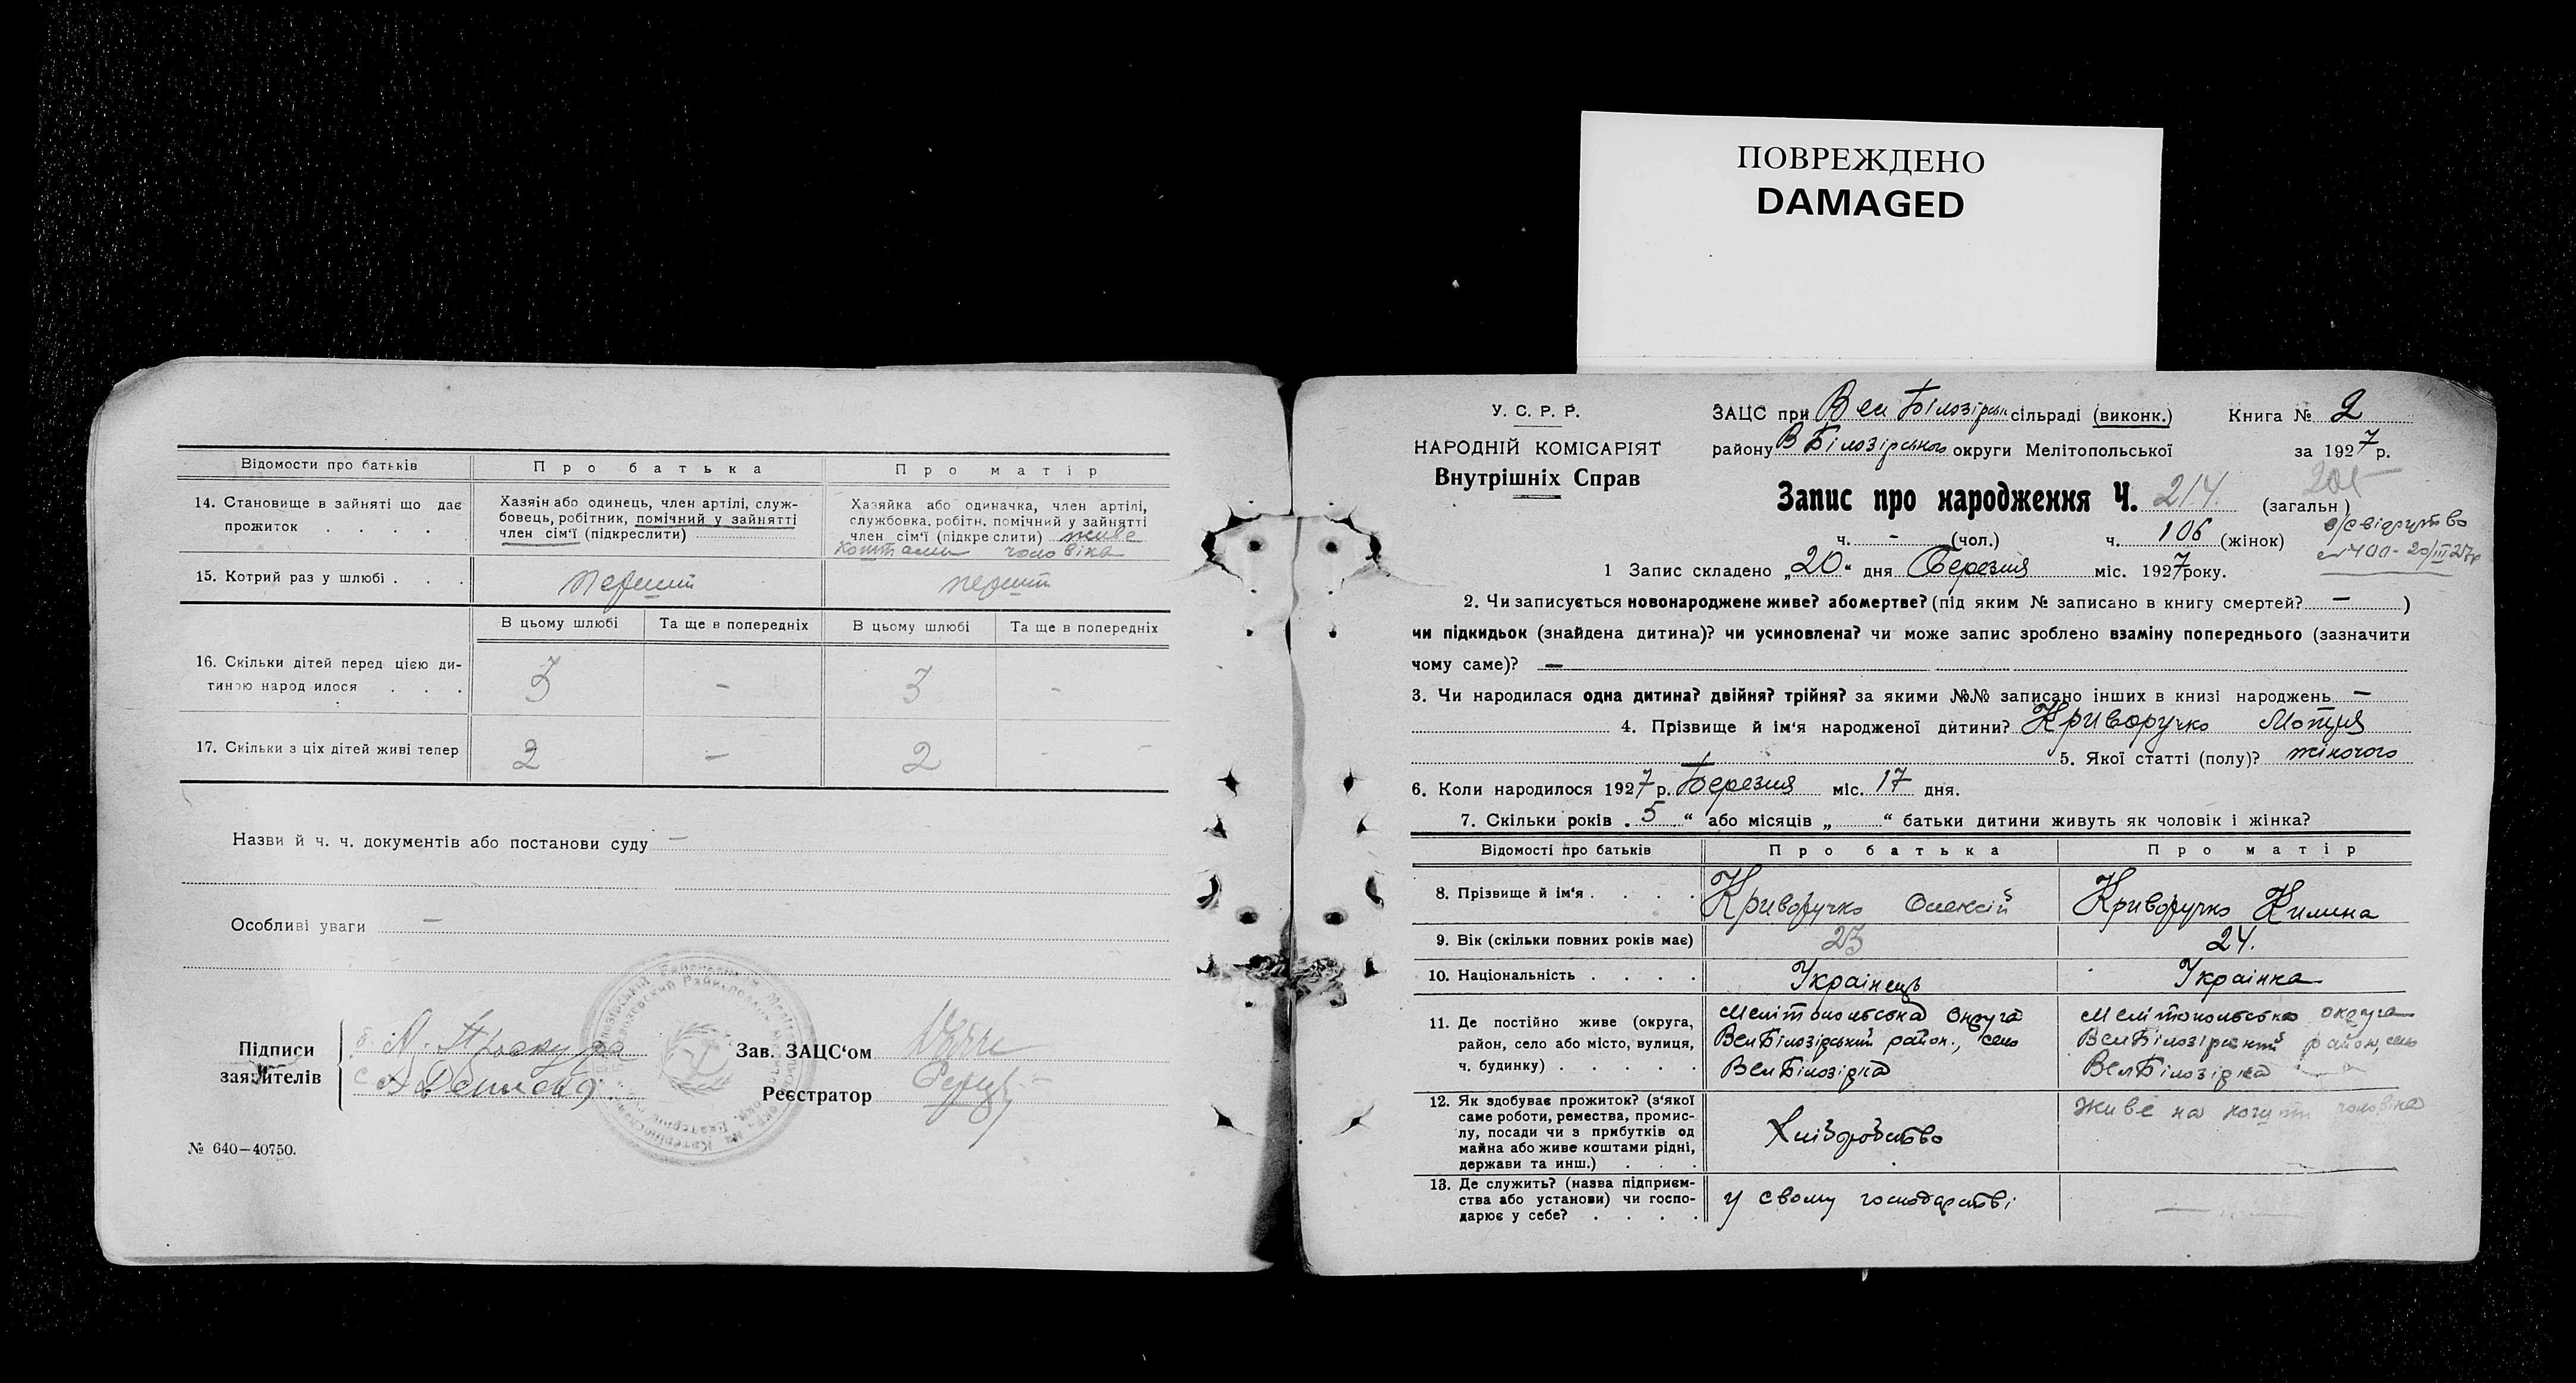 ПОВРЕЖДЕНО
DAMAGED
Відомости про батьків Про батька Про матір
14. Становище в зайняті що дає прожиток . . . .
Хазяін або одинець, член артілі, служ-
бовець, робітник, помічний у зайнятті
член сім'ї (підкреслити)
Хазяйка або одиначка, член артілі,
службовка, робітн. помічний у зайнятті
член сім'ї (підкреслити) живе
коштами чоловіка
15. Котрий раз у шлюбі . . . перший перший
В цьому шлюбі Та ще в попередніх В цьому шлюбі Та ще в попередніх
16. Скільки дітей перед цією ди-
тиною народилося . . . 3 - 3 -
17. Скільки з ціх дітей живі тепер 2 - 2 -
Назви й ч. ч. документів або постанови суду —
Особливі уваги —
Підписи
заявителів
Зав. ЗАЦС'ом
Реєстратор
№ 640—40750.
У. С. Р. Р.
НАРОДНІЙ КОМІСАРІЯТ
Внутрішніх Справ
ЗАЦС при Вел Білозірськ сільраді (виконк.) Книга № 2
району В Білозірського округи Мелітопольської за 1927 р.
Запис про народження Ч. 214. (загальн)
ч. - (чол.) ч. 106 (жінок)
1 Запис складено „20“ дня Березня міс. 1927 року.
2. Чи записується новонароджене живе? або мертве? (під яким № записано в книгу смертей? — )
чи підкидьок (знайдена дитина)? чи усиновлена? чи може запис зроблено взаміну попереднього (зазначити
чому саме)? —
3. Чи народилася одна дитина? двійня? трійня? за якими №№ записано інших в книзі народжень —
4. Прізвище й ім'я народженої дитини? Криворучко Мотря
5. Якої статті (полу)? жіночого
6. Коли народилося 1927 р. Березня міс. 17 дня.
7. Скільки років „5“ або місяців „ “ батьки дитини живуть як чоловік і жінка?
Відомості про батьків Про батька Про матір
8. Прізвище й ім'я . . . . Криворучко Олексій Криворучко Килина
9. Вік (скільки повних років має) 23 24.
10. Національність . . . . Українець Українка
11. Де постійно живе (округа,
район, село або місто, вулиця,
ч. будинку) . . . . .
Мелітопольська округа
ВелБілозірський район, село
ВелБілозірка
Мелітопольська округа
ВелБілозірський район, село
ВелБілозірка
12. Як здобуває прожиток? (з'якої
саме роботи, ремества, промис-
лу, посади чи з прибутків од
майна або живе коштами рідні,
держави та инш.) . . .
Хліборобство
Живе на кошти чоловіка
13. Де служить? (назва підприєм-
ства або установи) чи госпо-
дарює у себе? . . . .
у свому господарстві